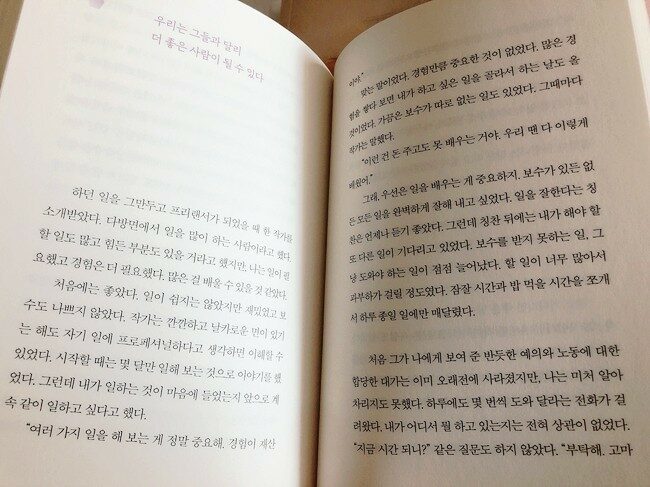 우리는 그들과 달리
더 좋은 사람이 될 수 있다
하던 일을 그만두고 프리랜서가 되었을 때 한 작가를
소개받았다. 다방면에서 일을 많이 하는 사람이라고 했다.
할 일도 많고 힘든 부분도 있을 거라고 했지만, 나는 일이 필
요했고 경험은 더 필요했다. 많은 걸 배울 수 있을 것 같았다.
처음에는 좋았다. 일이 쉽지는 않았지만 재밌었고 보
수도 나쁘지 않았다. 작가는 깐깐하고 날카로운 면이 있기
는 해도 자기 일에 프로페셔널하다고 생각하면 이해할 수
있었다. 시작할 때는 몇 달만 일해 보는 것으로 이야기를 했
었다. 그런데 내가 일하는 것이 마음에 들었는지 앞으로 계
속 같이 일하고 싶다고 했다.
“여러 가지 일을 해 보는 게 정말 중요해. 경험이 재산
이야.”
맞는 말이었다. 경험만큼 중요한 것이 없었다. 많은 경
험을 쌓다 보면 내가 하고 싶은 일을 골라서 하는 날도 올
것이었다. 가끔은 보수가 따로 없는 일도 있었다. 그때마다
작가는 말했다.
“이런 건 돈 주고도 못 배우는 거야. 우리 땐 다 이렇게
배웠어.”
그래, 우선은 일을 배우는 게 중요하지. 보수가 있든 없
든 모든 일을 완벽하게 잘해 내고 싶었다. 일을 잘한다는 칭
찬은 언제나 듣기 좋았다. 그런데 칭찬 뒤에는 내가 해야 할
또 다른 일이 기다리고 있었다. 보수를 받지 못하는 일, 그
냥 도와야 하는 일이 점점 늘어났다. 할 일이 너무 많아서
과부하가 걸릴 정도였다. 잠잘 시간과 밥 먹을 시간을 쪼개
서 하루 종일 일에만 매달렸다.
처음 그가 나에게 보여 준 반듯한 예의와 노동에 대한
합당한 대가는 이미 오래전에 사라졌지만, 나는 미처 알아
차리지도 못했다. 하루에도 몇 번씩 도와 달라는 전화가 걸
려왔다. 내가 어디서 뭘 하고 있는지는 전혀 상관이 없었다.
“지금 시간 되니?” 같은 질문도 하지 않았다. “부탁해. 고마